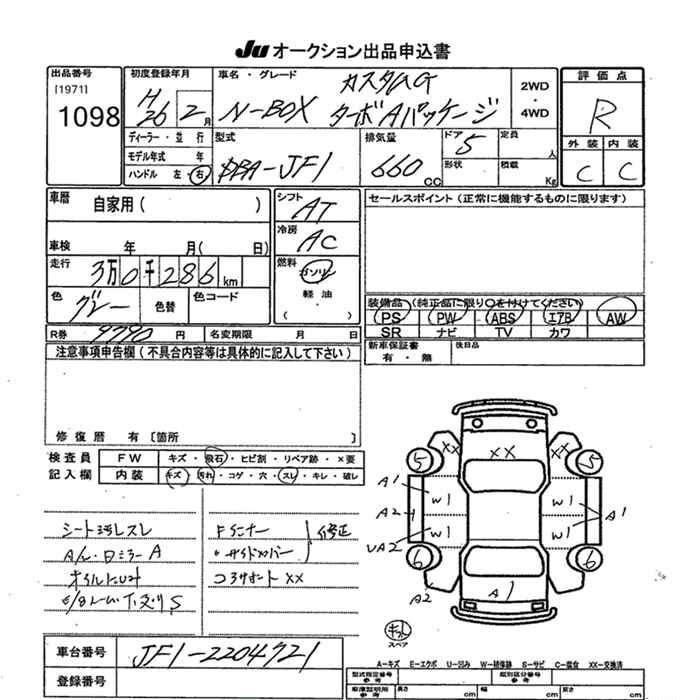 Ju オークション出品申込書
出品番号
[1971]
1098
初度登録年月
H26 2 月
車名・グレード
カスタムG
N-BOX ターボAパッケージ
2WD
・
4WD
評価点
R
外装 内装
C C
ディーラー・並行
モデル年式 年
ハンドル 左・右
型式
DBA-JF1
排気量
660 CC
ドア 5
形状
定員 人
積載 Kg
車歴 自家用 ( )
車検 年 月 ( 日)
走行 3万0千286km
色 グレー 色替 色コード
シフト
AT
冷房
AC
燃料
ガソリン
軽油
( )
セールスポイント (正常に機能するものに限ります)
装備品 (純正品に限り○を付けてください)
PS PW ABS エアB AW
SR ナビ TV カワ
新車保証書
有・無
後日品
R券 9790 円 名変期限 月 日
注意事項申告欄 ( 不具合内容等は具体的に記入して下さい )
修復歴 有 〔箇所 〕
検査員
記入欄
FW キズ・飛石・ヒビ割・リペア跡・×要
内装 キズ・汚れ・コゲ・穴・スレ・キレ・破レ
シート汚レスレ
オイルにじみ
Fインナー
サイドメンバー
修正
コアサポートXX
XX XX XX
5 5
A1 W1 W1
A2 W1 W1 A1
UA2
6 6
A2 A1
スペア
A-キズ E-エクボ U-凹み W-補修跡 S-サビ C-腐食 XX-交換済
車台番号 JF1-2204721
登録番号
型式指定番号
参考
類別区分番号
参考
車庫証明用
参考
長さ cm 幅 cm 高さ cm